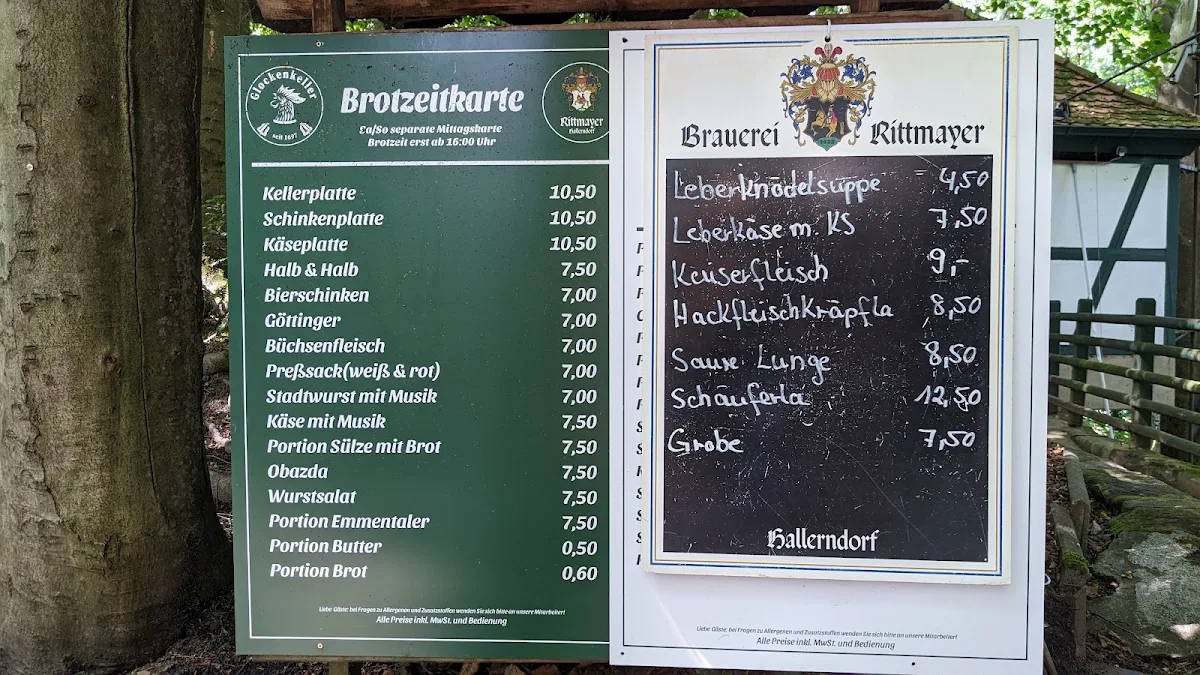 Glockenkeller
seit 1697
Brotzeitkarte
Sa/So separate Mittagskarte
Brotzeit erst ab 16:00 Uhr
Rittmayer
Hallerndorf
Kellerplatte 10,50
Schinkenplatte 10,50
Käseplatte 10,50
Halb & Halb 7,50
Bierschinken 7,00
Göttinger 7,00
Büchsenfleisch 7,00
Preßsack(weiß & rot) 7,00
Stadtwurst mit Musik 7,00
Käse mit Musik 7,50
Portion Sülze mit Brot 7,50
Obazda 7,50
Wurstsalat 7,50
Portion Emmentaler 7,50
Portion Butter 0,50
Portion Brot 0,60
Liebe Gäste: bei Fragen zu Allergenen und Zusatzstoffen wenden Sie sich bitte an unsere Mitarbeiter!
Alle Preise inkl. MwSt. und Bedienung
Brauerei Rittmayer
1422
Leberknödelsuppe 4,50
Leberkäse m. KS 7,50
Keuserfleisch 9,-
Hackfleischkräpfla 8,50
Saure Lunge 8,50
Schäuferla 12,50
Grobe 7,50
Hallerndorf
Liebe Gäste: bei Fragen zu Allergenen und Zusatzstoffen wenden Sie sich bitte an unsere Mitarbeiter!
Alle Preise inkl. MwSt. und Bedienung